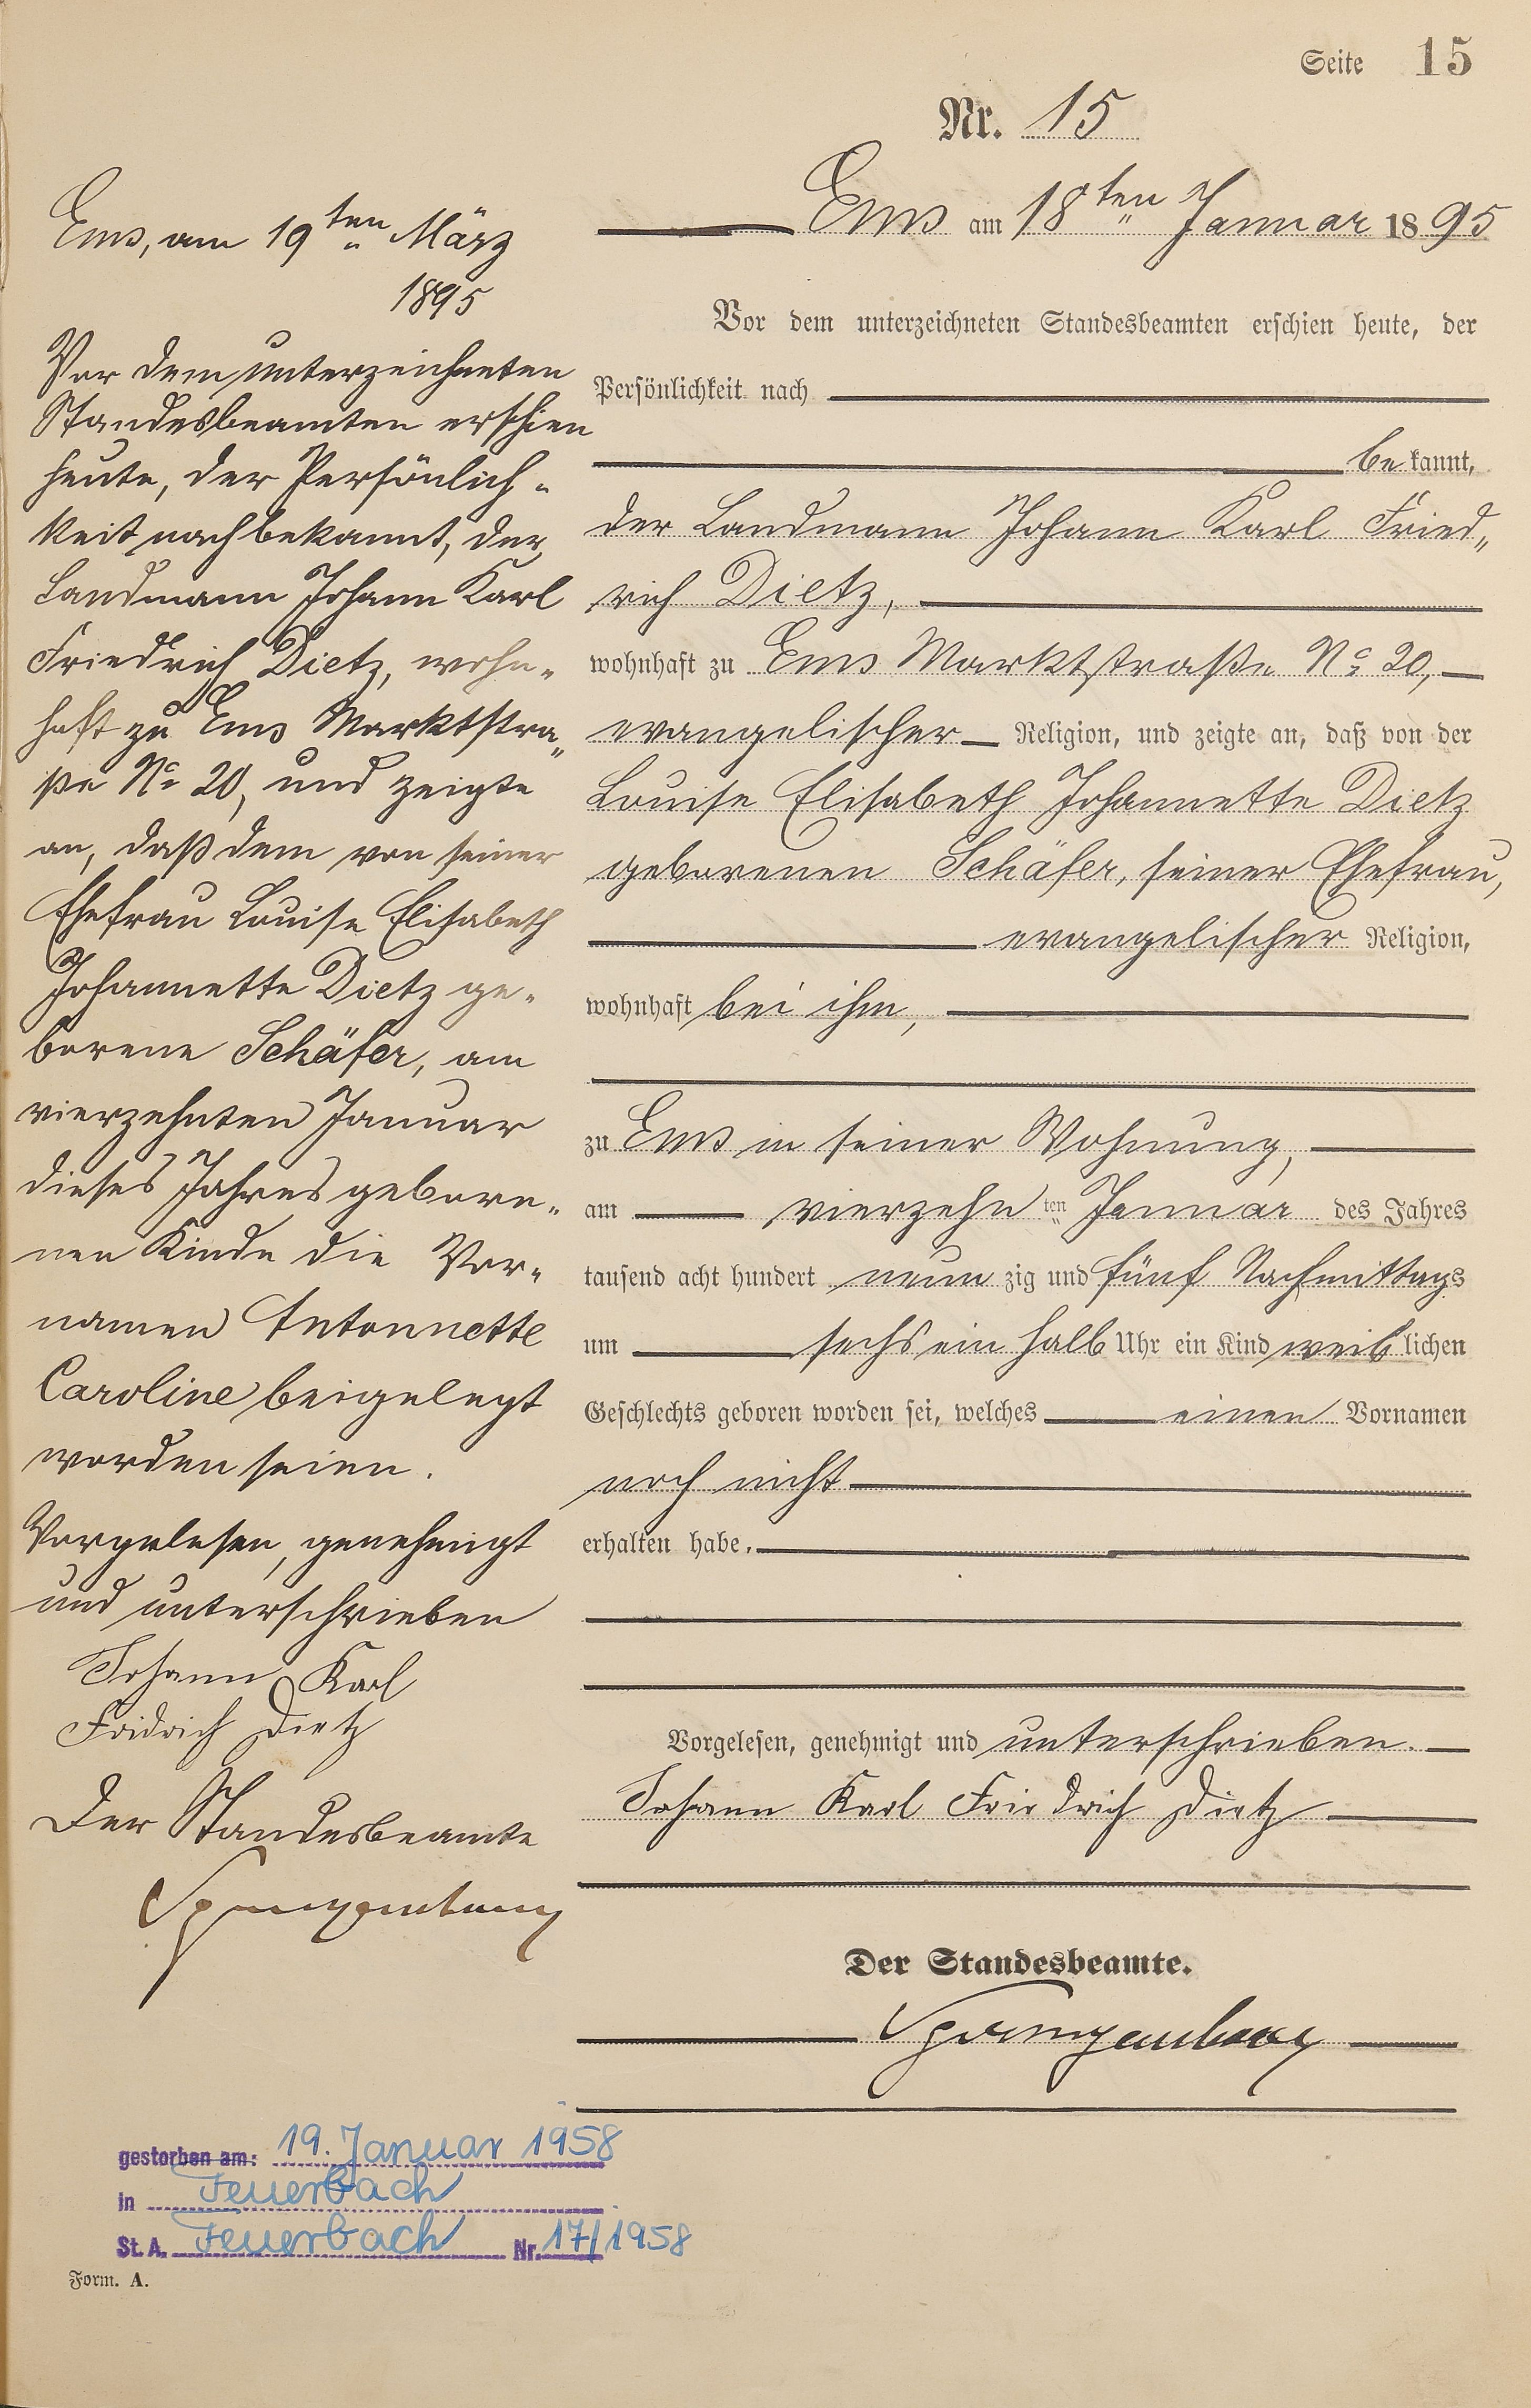 Seite 15
Nr. 15
Ems am 18ten Januar 1895
Vor dem unterzeichneten Standesbeamten erschien heute, der
Persönlichkeit nach
bekannt,
der Landmann Johann Karl Fried„
rich Dietz,
wohnhaft zu Ems Marktstraße No 20,
evangelischer Religion, und zeigte an, daß von der
Louise Elisabeth Johannette Dietz
geborenen Schäfer, seiner Ehefrau,
evangelischer Religion,
wohnhaft bei ihm,
zu Ems in seiner Wohnung,
am vierzehnten Januar des Jahres
tausend acht hundert neunzig und fünf Nachmittags
um sechs ein halb Uhr ein Kind weiblichen
Geschlechts geboren worden sei, welches einen Vornamen
noch nicht
erhalten habe.
Vorgelesen, genehmigt und unterschrieben.
Johann Karl Friedrich Dietz
Der Standesbeamte.
Ems, am 19ten März
1895
Vor dem unterzeichneten
Standesbeamten erschien
heute, der Persönlich-
keit nach bekannt, der
Landmann Johann Karl
Friedrich Dietz, wohn-
haft zu Ems Marktstra„
ße No 20, und zeigte
an, daß dem von seiner
Ehefrau Louise Elisabeth
Johannette Dietz ge-
borene Schäfer, am
vierzehnten Januar
dieses Jahres gebore-
nen Kinde die Vor-
namen Antonnette
Caroline beigelegt
worden seien.
Vorgelesen, genehmigt
und unterschrieben
Johann Karl
Fridrich Dietz
Der Standesbeamte
gestorben am: 19. Januar 1958
in Feuerbach
St. A. Feuerbach Nr. 17/1958
Form. A.